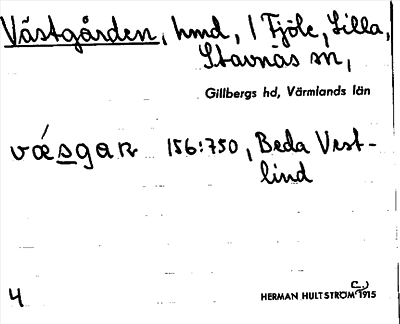 Västgården, hmd, / Fjöle, Lilla,
Stavnäs sn,
Gillbergs hd, Värmlands län
vǽsgaʀ 156:750, Beda Vest-
lind
4
HERMAN HULTSTRÖM 1915